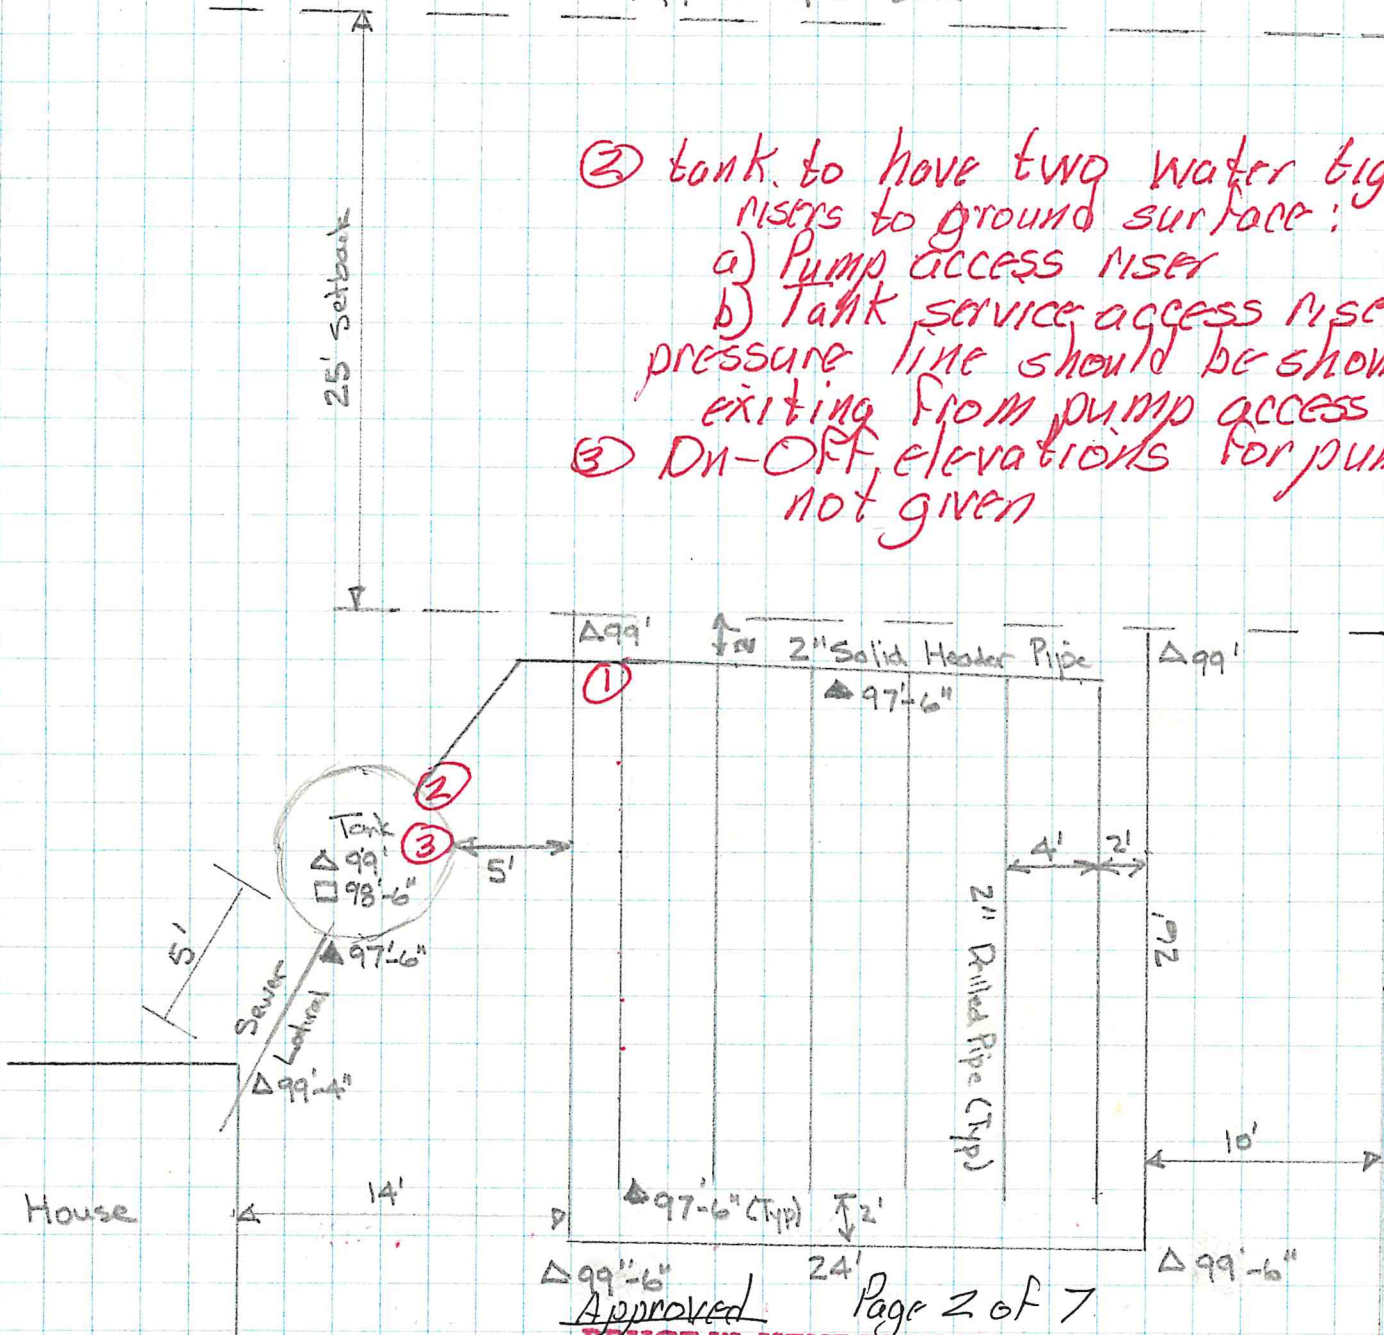 25' setback
② tank to have two water tig
risers to ground surface:
a) Pump access riser
b) Tank service access rise
pressure line should be show
exiting from pump access
③ On-Off elevations for pum
not given
△ 99'
2'
2" Solid Header Pipe
△ 99'
①
▲ 97'-6"
②
Tank
③
△ 99'
□ 98'-6"
5'
4'
2'
▲ 97'-6"
5'
Sewer
Lateral
2" Drilled Pipe (Typ)
26'
△ 99'-4"
10'
House
14'
▲ 97'-6" (Typ)
2'
△ 99"-6"
24'
△ 99'-6"
Approved
Page 2 of 7